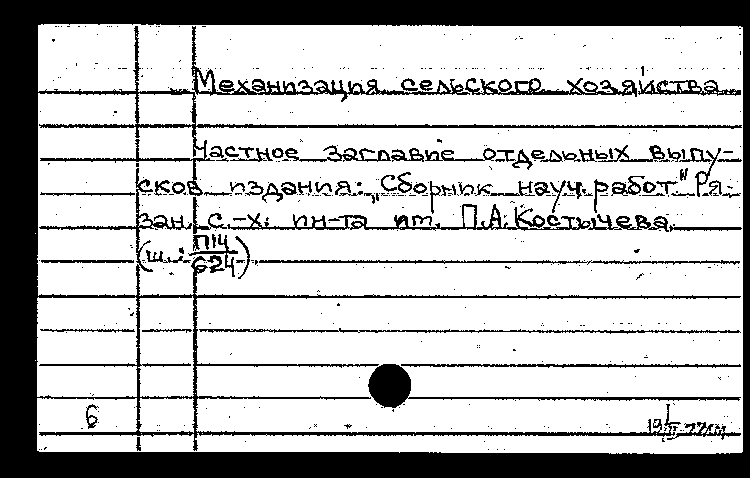 Механизация сельского хозяйства
Частное заглавие отдельных выпу-
сков издания: „Сборник науч. работ" Ря-
зан. с.-х. ин-та им. П.А. Костычева.
(ш.: П14
624)
6